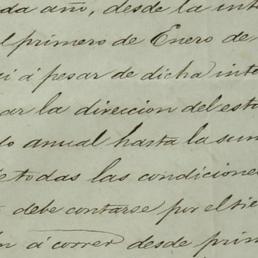 da año, desde la int
l primero de Enero de
i á pesar de dicha inte
ar la direccion del est
do anual hasta la sum
e todas las condicione
debe contarse por el tie
n á correr desde prim